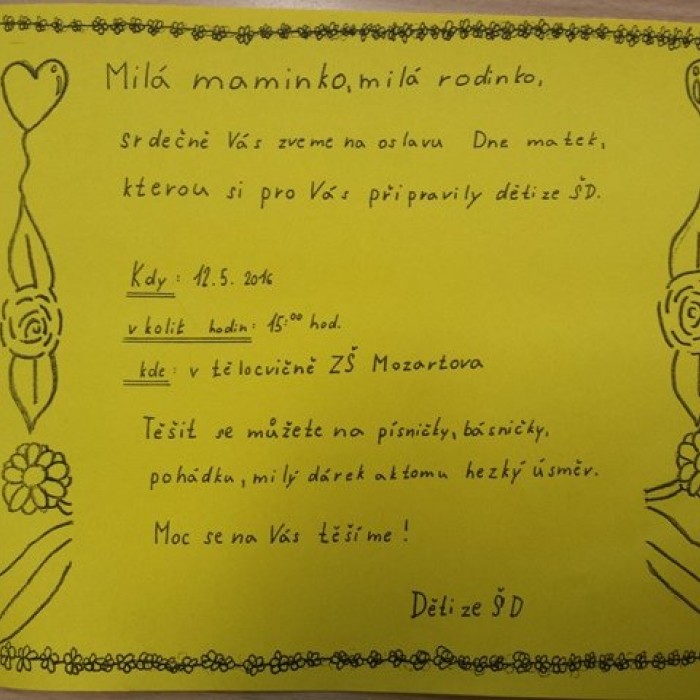 Milá maminko, milá rodinko,
srdečně Vás zveme na oslavu Dne matek,
kterou si pro Vás připravily děti ze ŠD.
Kdy: 12.5. 2016
v kolik hodin: 15:00 hod.
kde: v tělocvičně ZŠ Mozartova
Těšit se můžete na písničky, básničky,
pohádku, milý dárek a k tomu hezký úsměv.
Moc se na Vás těšíme!
Děti ze ŠD